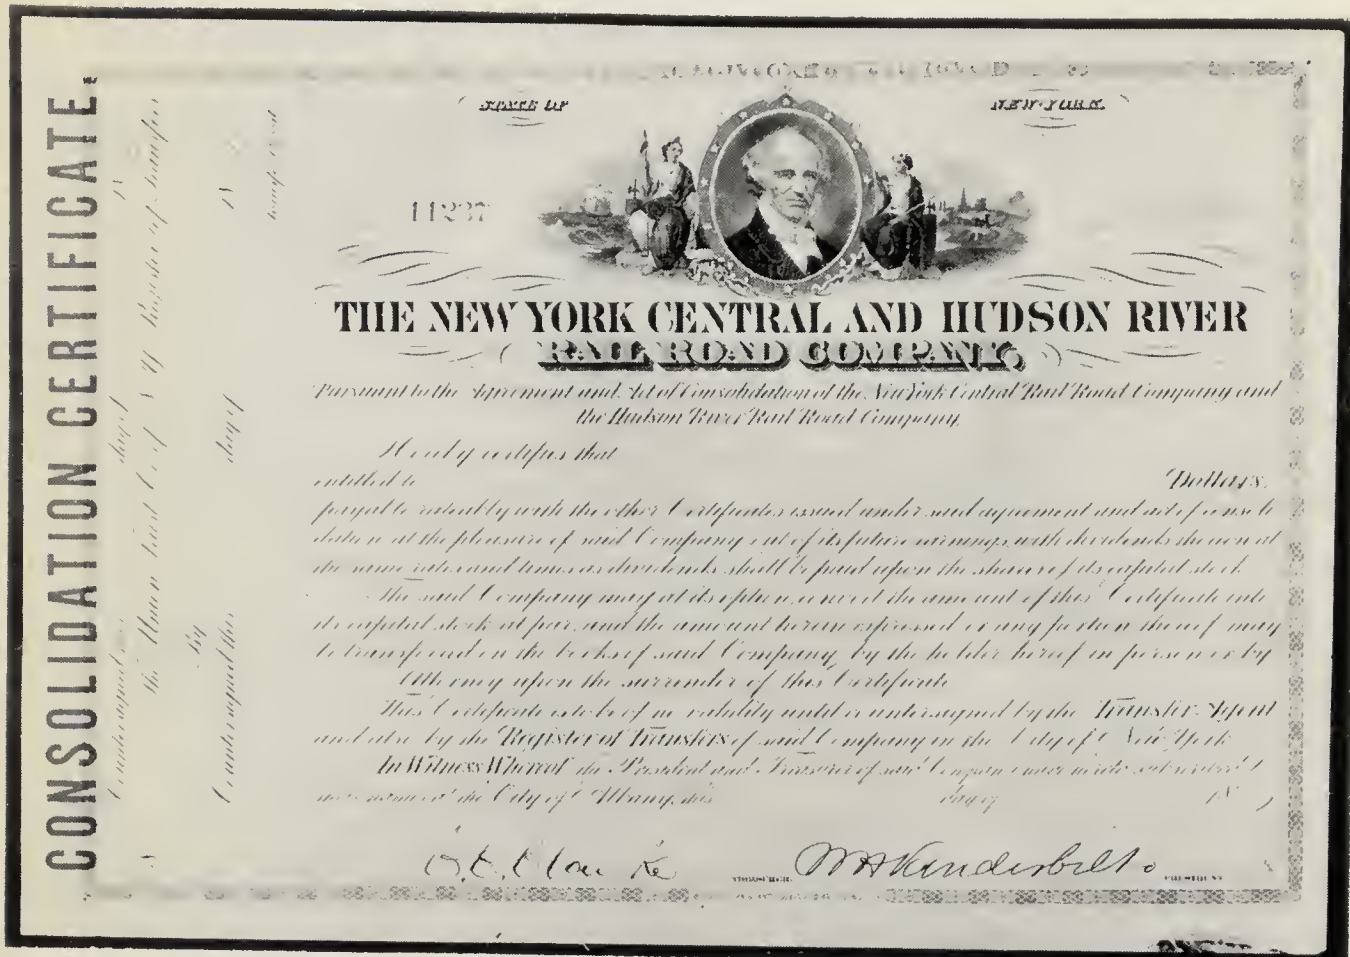 CONSOLIDATION CERTIFICATE.
Countersigned this day of 18
the Union Trust Co. of N.Y. Register of Transfers
by
Countersigned this day of 18
STATE OF
NEW-YORK.
11237
THE NEW YORK CENTRAL AND HUDSON RIVER
RAIL ROAD COMPANY,
Pursuant to the Agreement and Act of Consolidation of the New York Central Rail Road Company and
the Hudson River Rail Road Company,
Hereby certifies that
entitled to Dollars.
payable ratably with the other Certificates issued under said agreement and act of conso li
dation at the pleasure of said Company out of its future earnings, with dividends thereon at
the same rates and times as dividends shall be paid upon the shares of its capital stock
The said Company may at its option, convert the amount of this Certificate into
its capital stock at par, and the amount herein expressed or any portion thereof may
be transferred on the books of said Company, by the holder hereof in person or by
Attorney upon the surrender of this Certificate
This Certificate is to be of no validity until countersigned by the Transfer Agent
and also by the Register of Transfers of said Company in the City of New York
In Witness Whereof the President and Treasurer of said Company have hereto subscribed
at the City of Albany, this day of 18
TREASURER. W H Vanderbilt PRESIDENT